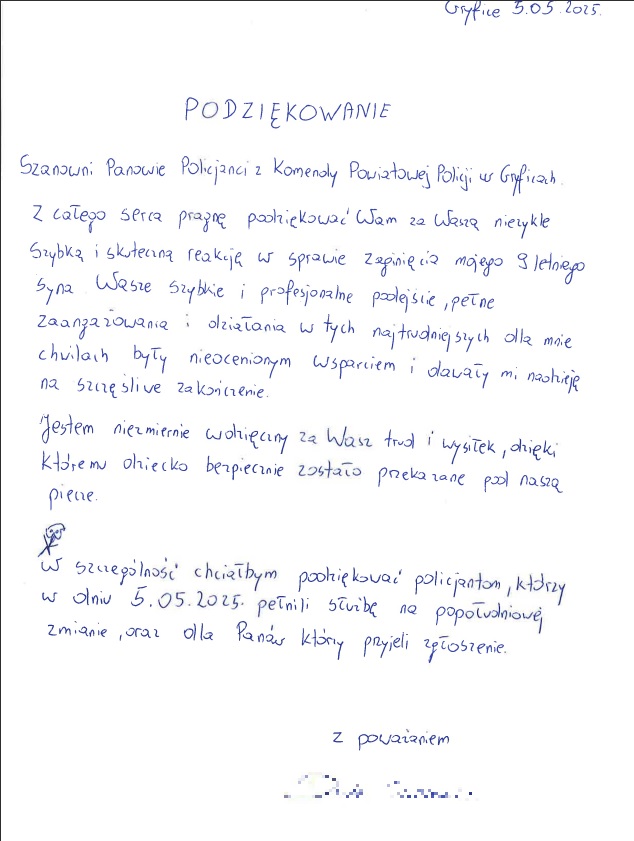 Gryfice 5.05.2025.
PODZIĘKOWANIE
Szanowni Panowie Policjanci z Komendy Powiatowej Policji w Gryficach.
Z całego serca pragnę podziękować Wam za Waszą niezykle
szybką i skuteczną reakcję w sprawie zaginięcia mojego 9 letniego
syna Wasze szybkie i profesjonalne podejście, pełne
zaangażowania i działania w tych najtrudniejszych dla mnie
chwilach były nieocenionym wsparciem i dawały mi nadzieję
na szczęślive zakończenie.
Jestem niezmiernie wdzięczny za Wasz trud i wysiłek, dzięki
któremu dziecko bezpiecznie zostało przekazane pod naszą
piecze.
W szczególność chciałbym podziękować policjantom, którzy
w dniu 5.05.2025. pełnili służbę na popołudniowej
zmianie, oraz dla Panów którzy przyjeli zgłoszenie.
Z poważaniem